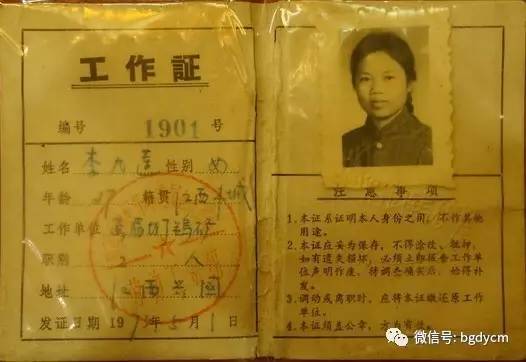 工作証
编号 1901 号
姓名 李九莲 性别 女
年龄 27 籍贯 江西
工作单位
职别 工人
地址 江西兴国
发证日期 19 年5月1日
注意事项
1.本证系证明本人身份之用，不作其他
用途。
2.本证应妥为保存，不得涂改、抵押，
如有遗失损坏，必须立即报告工作单
位声明作废，待调查确实后，始得补
发。
3.调动或离职时，应将本证缴还原工作
单位。
4.本证须盖公章，方为有效。
微信号: bgdycm